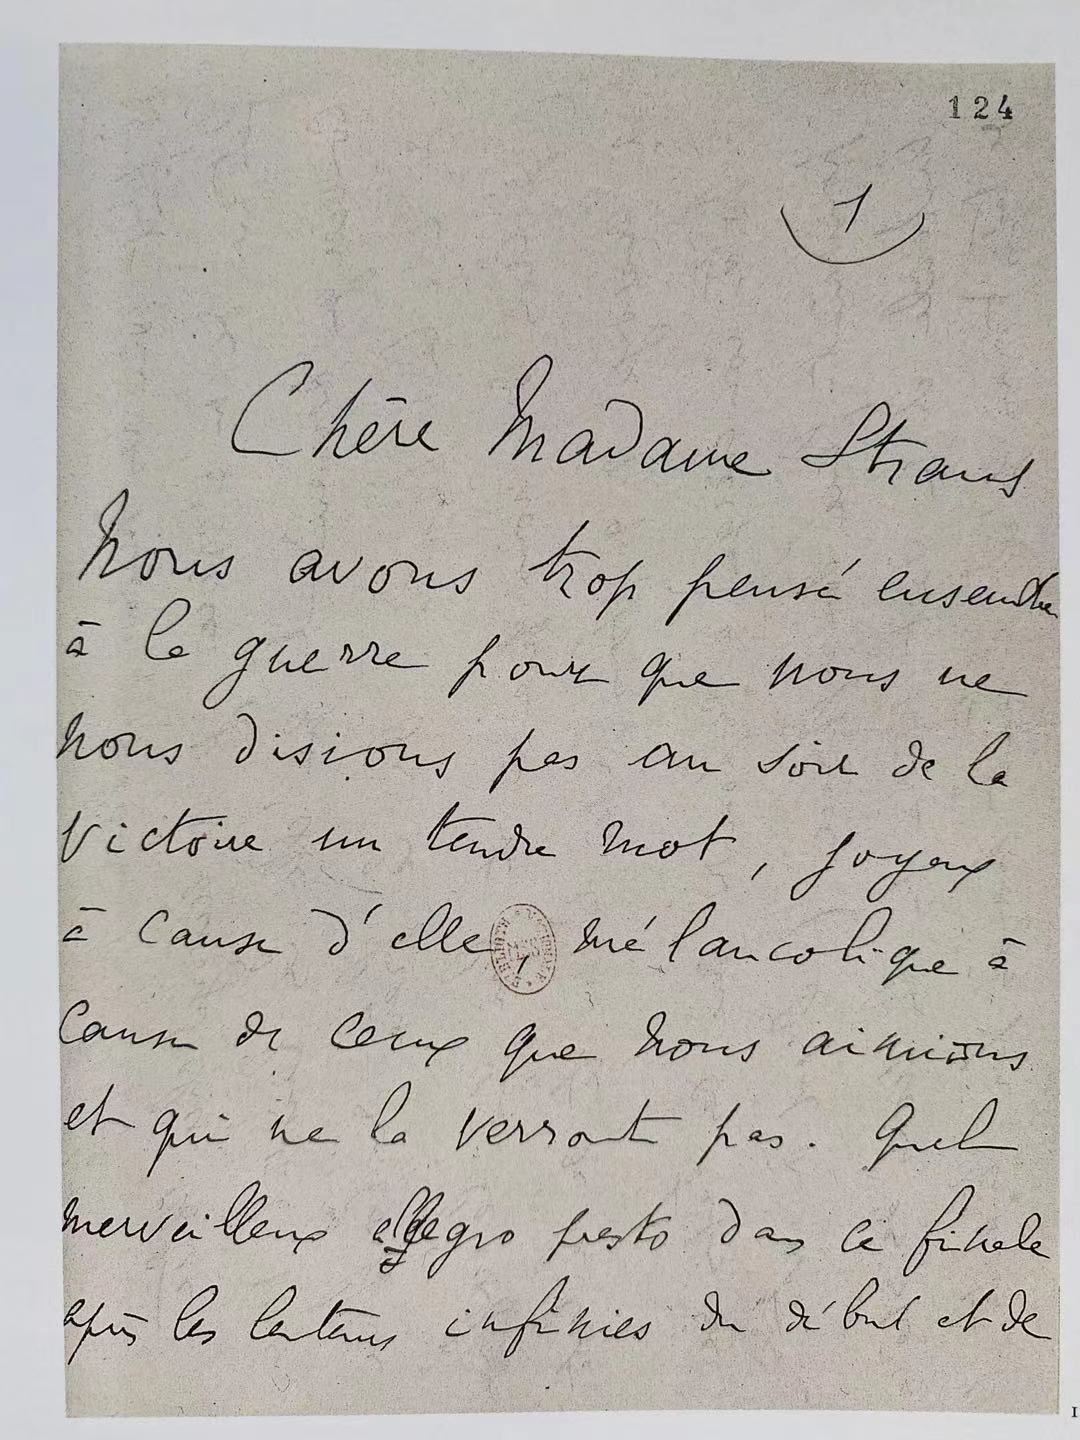 124
1
Chère Madame Straus
Nous avons trop pensé ensemble
à la guerre pour que nous ne
nous disions pas au soir de la
Victoire un tendre mot, joyeux
à cause d'elle, mélancolique à
cause de ceux que nous aimions
et qui ne la verront pas. Quel
merveilleux allegro presto dans ce finale
après les lenteurs infinies du début et de